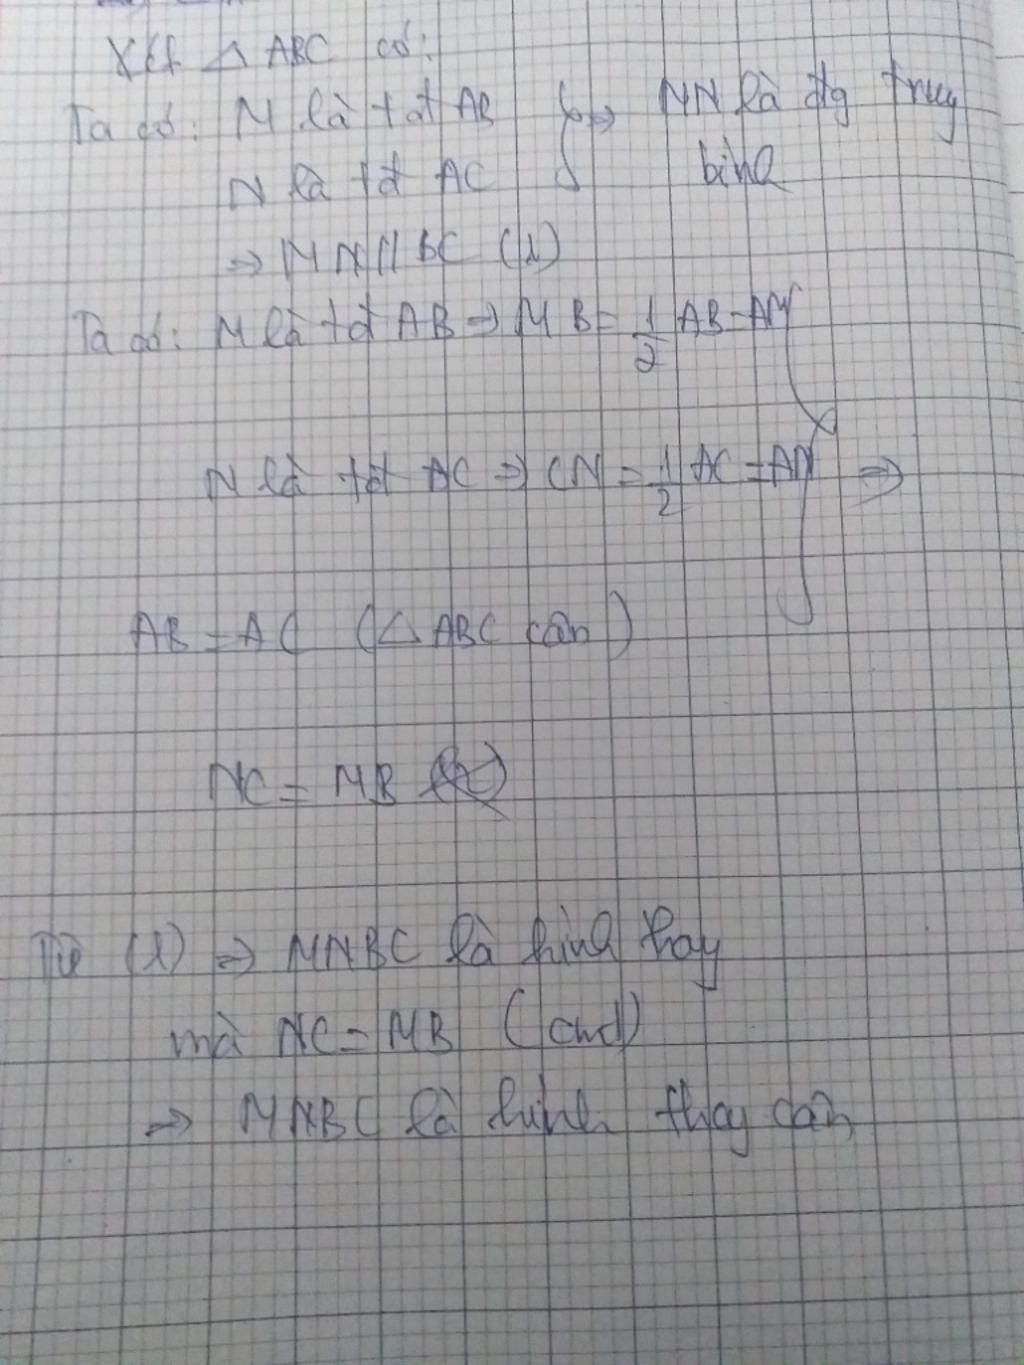 Xét △ ABC có:
Ta có: M là tđ AB } => MN là đg trung
N là tđ AC bình
=> MN // BC (1)
Ta có: M là tđ AB => MB = 1/2 AB = AM
N là tđ AC => CN = 1/2 AC = AN } =>
AB = AC (△ ABC cân)
NC = MB
Từ (1) => MNBC là hình thag
mà NC = MB (cmt)
=> MNBC là hình thag cân